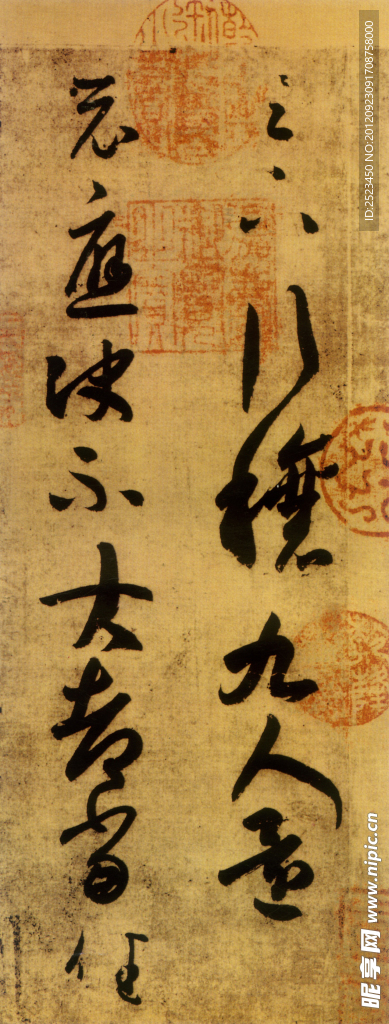 足下行穰九人還
示應決不大都當佳
ID:2523450 NO:20120923091708758000
昵享网 www.nipic.cn